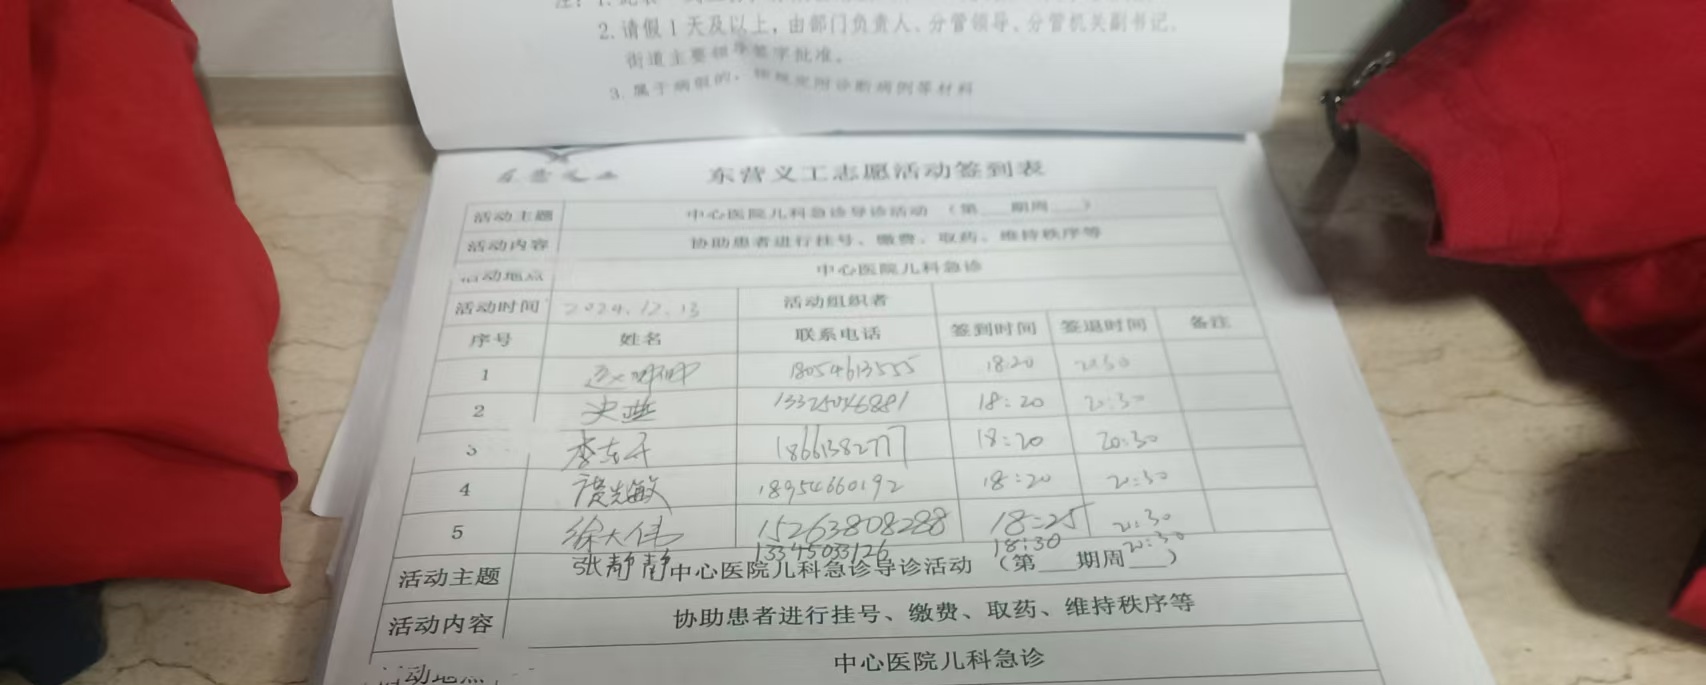 2. 请假1天及以上，由部门负责人、分管领导、分管机关副书记、
街道主要领导签字批准。
3. 属于病假的，按规定附诊断病例等材料
东营义工
东营义工志愿活动签到表
活动主题 中心医院儿科急诊导诊活动 （第 期周 ）
活动内容 协助患者进行挂号、缴费、取药、维持秩序等
活动地点 中心医院儿科急诊
活动时间 2024.12.13 活动组织者
序号 姓名 联系电话 签到时间 签退时间 备注
1 18054613555 18:20 20:30
2 18:20 20:30
3 18661382777 18:20 20:30
4 18954660192 18:20 20:30
5 徐大伟 15263808288 18:25 20:30
张静静 13345033126 18:30 20:30
活动主题 中心医院儿科急诊导诊活动 （第 期周 ）
活动内容 协助患者进行挂号、缴费、取药、维持秩序等
活动地点 中心医院儿科急诊